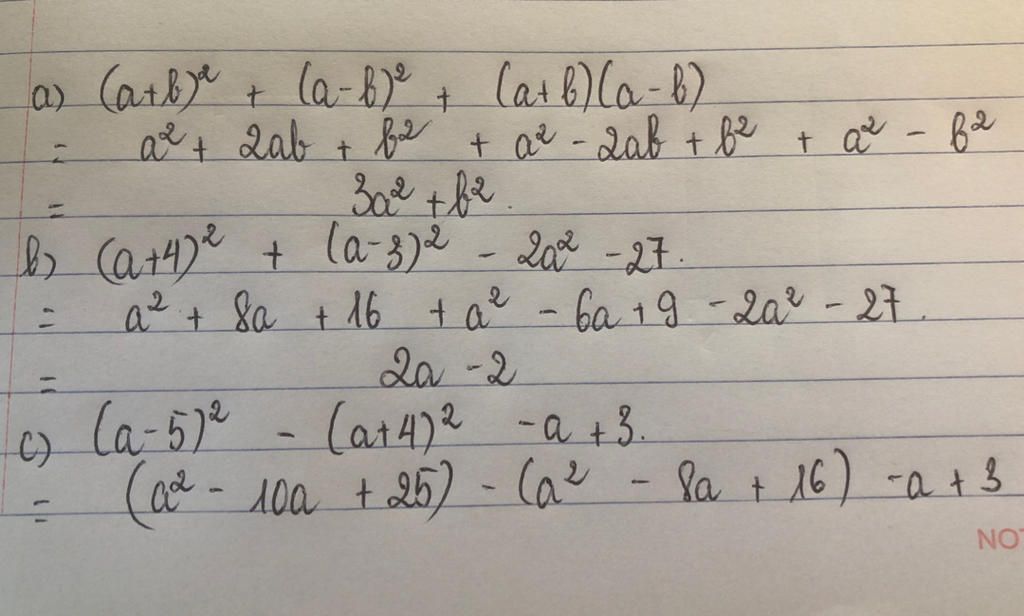 a) (a+b)² + (a-b)² + (a+b)(a-b)
= a² + 2ab + b² + a² - 2ab + b² + a² - b²
= 3a² + b².
b) (a+4)² + (a-3)² - 2a² - 27.
= a² + 8a + 16 + a² - 6a + 9 - 2a² - 27.
= 2a - 2
c) (a-5)² - (a+4)² - a + 3.
= (a² - 10a + 25) - (a² - 8a + 16) - a + 3